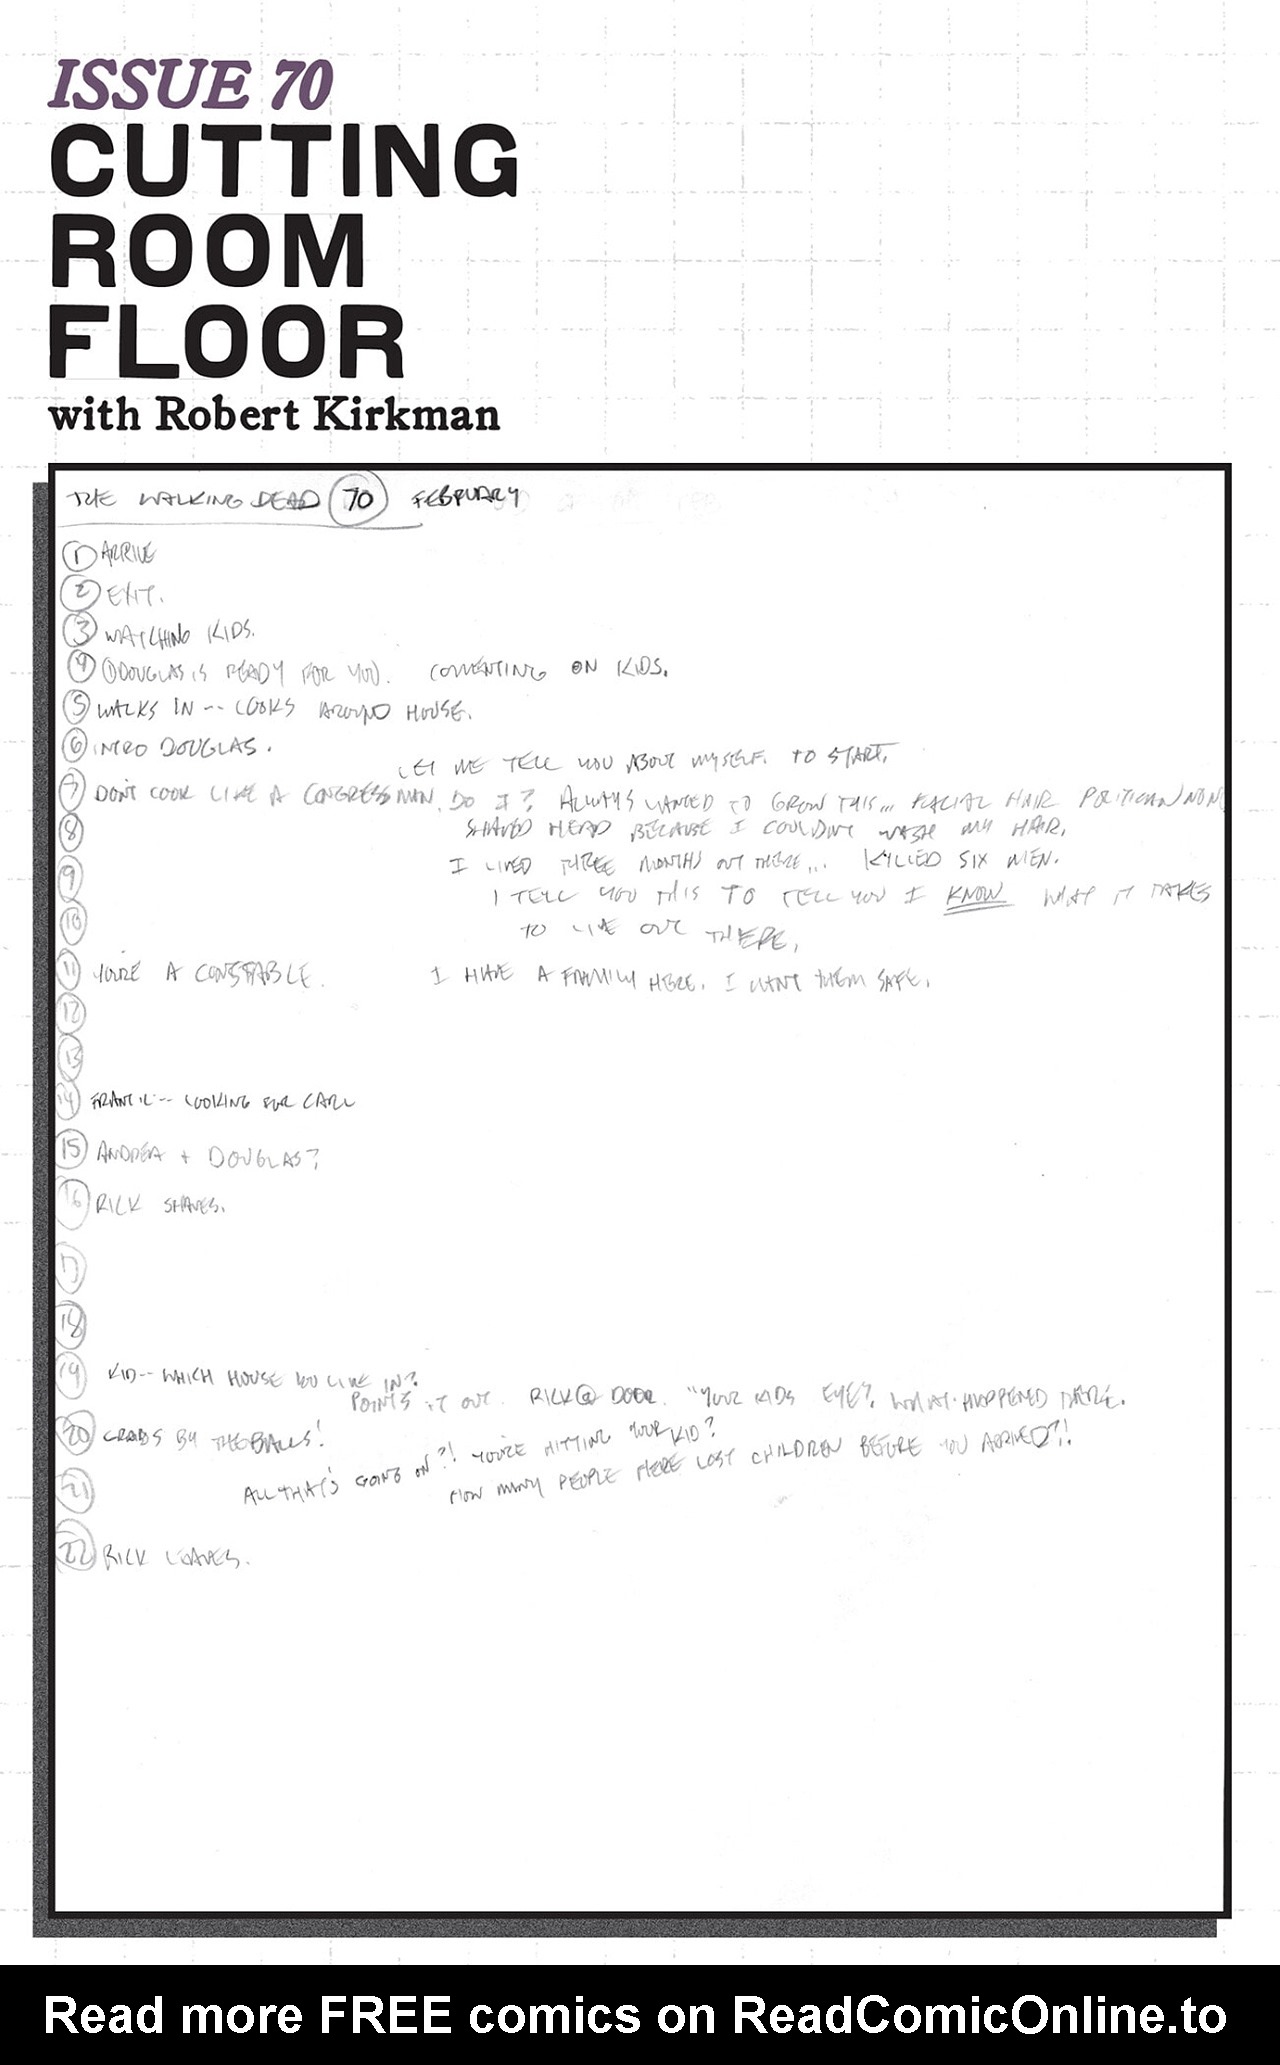 ISSUE 70
CUTTING
ROOM
FLOOR
with Robert Kirkman
THE WALKING DEAD 70 FEBRUARY
1 ARRIVE
2 EXIT.
3 WATCHING KIDS.
4 DOUGLAS IS READY FOR YOU. COMENTING ON KIDS.
5 WALKS IN -- LOOKS AROUND HOUSE.
6 INTRO DOUGLAS.
LET ME TELL YOU ABOUT MYSELF. TO START.
7 DON'T LOOK LIKE A CONGRESSMAN, DO I? ALWAYS WANTED TO GROW THIS... FACIAL HAIR POLITICIAN NONO
8 SHAVED HEAD BECAUSE I COULDN'T WASH MY HAIR.
9 I LIVED THREE MONTHS OUT THERE... KILLED SIX MEN.
10 I TELL YOU THIS TO TELL YOU I KNOW WHAT IT TAKES
TO LIVE OUT THERE.
11 YOU'RE A CONSTABLE. I HAVE A FAMILY HERE. I WANT THEM SAFE.
12
13
14 FRANTIC -- LOOKING FOR CARL
15 ANDREA + DOUGLAS?
16 RICK SHAVES.
17
18
19 KID -- WHICH HOUSE YOU LIVE IN?
POINTS IT OUT. RICK @ DOOR. "YOUR KIDS EYE? WHAT HAPPENED THERE.
20 GRABS BY THE BALLS!
ALL THAT'S GOING ON?! YOU'RE HITTING YOUR KID?
21 HOW MANY PEOPLE HERE LOST CHILDREN BEFORE YOU ARRIVED?!
22 RICK LEAVES.
Read more FREE comics on ReadComicOnline.to